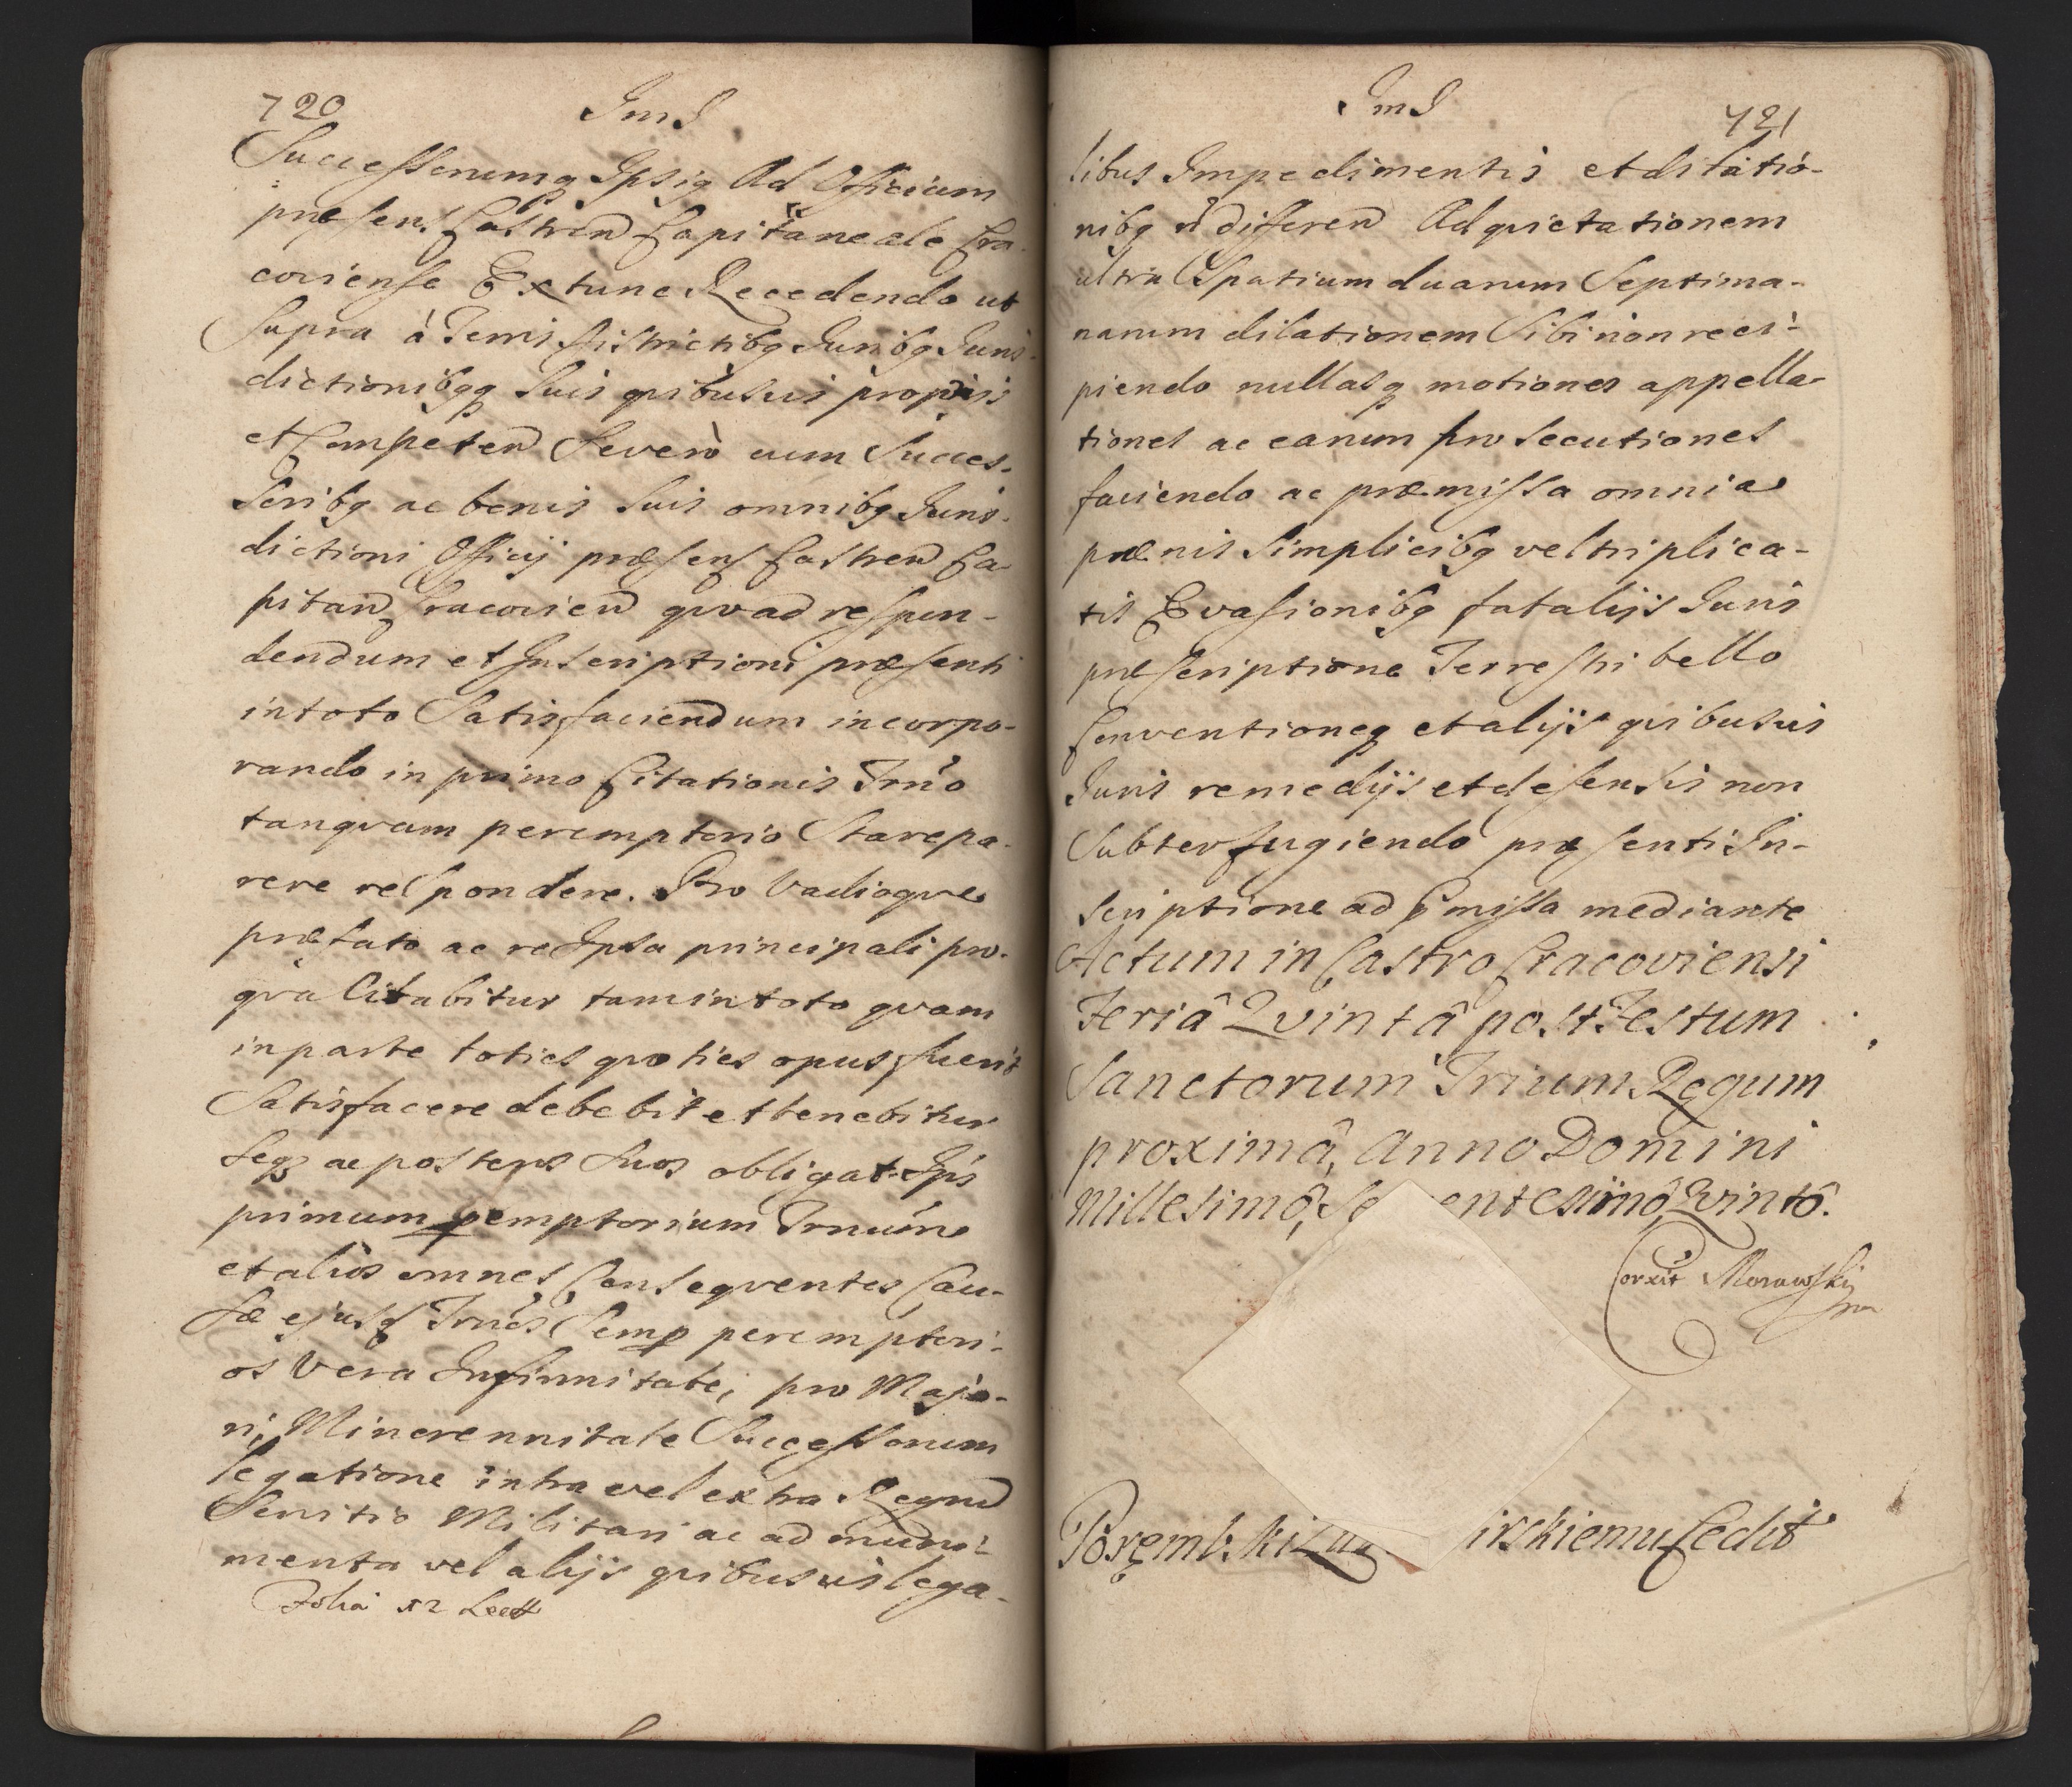 720
JmJ
Successorumq Ipsiq Ad Officium
præsens Castren Capitaneale Cra-
coviense Extunc Recedendo ut
Supra à Terris districtibq Juribq Juris-
dictionibqq Suis quibusvis proprijs
et Competen Severò cum Succes-
soribq ac bonis Suis omnibq Juris-
dictioni Officij præsens Castren Ca-
pitan Cracovien qvoad respon-
dendum et Inscriptioni præsenti
in toto Satisfaciendum incorpo-
rando in primo Citationis Trno
tanqvam peremptorio Stare pa-
rere respondere. Pro Vadioqve
præfato ac re Ipsa principali pro-
qva Citabitur tam in toto qvam
in parte toties qvoties opus fuerit
Satisfacere debebit et tenebitur
Seqz ac posteros Suos obligat. Ips
primum pemptorium Trnum
et alios omnes Conseqventes Cau-
sæ ejusq Trnos Semp peremptori-
os Vera Infirmitate, pro Majo-
ri, Minorennitate Successorum
legatione intra vel extra Regnu
Servitio Militari ac ad muni-
menta vel alijs qvibusvis lega-
Folia 52 Lect
JmJ
721
libus Impedimentis et dilatio-
nibq ñ differen Ad quietationem
ultra Spatium duarum Septima-
narum dilationem Sibi non reci-
piendo nullasq motiones appella-
tiones ac earum prosecutiones
faciendo ac præmissa omnia
pænis Simplicibq vel triplica-
tis Evasionibq fatalijs Juris
præscriptione Terrestri bello
Conventioneq et alijs qvibusvis
Juris remedijs et defensis non
Subterfugiendo præsenti In-
scriptione ad pmissa mediante
Actum in Castro Cracoviensi
Feriâ Qvintâ post Festum
Sanctorum Trium Regum
proximâ, Anno Domini
Millesimô, Se entesimô Qvintô.
Corxit Morawskj
mp
Porębski irskiemu Cedit